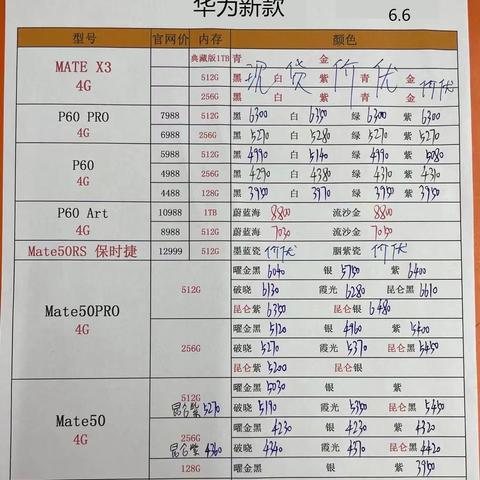 华为新款 6.6
型号 官网价 内存 颜色
MATE X3 4G
典藏版1TB 青 金
512G 黑 白 紫 青 金
256G 黑 白 紫 青 金
现货价优 价优
P60 PRO 4G
7988 512G 黑 6300 白 6350 绿 6300 紫 6300
6988 256G 黑 5270 白 5280 绿 5270 紫 5270
P60 4G
5988 512G 黑 4990 白 5140 绿 4990 紫 5080
4988 256G 黑 4290 白 4380 绿 4310 紫 4310
4488 128G 黑 3950 白 3970 绿 3950 紫 3950
P60 Art 4G
10988 1TB 蔚蓝海 8800 流沙金 8800
8988 512G 蔚蓝海 7030 流沙金 7050
Mate50RS 保时捷 12999 512G 墨蓝瓷 价优 胭紫瓷 价优
Mate50PRO 4G
512G 曜金黑 6040 银 5750 紫 6400
破晓 6130 霞光 6280 昆仑黑 6610
昆仑紫 6350 昆仑银 6480
256G 曜金黑 5120 银 4960 紫 5400
破晓 5270 霞光 5370 昆仑黑 5450
昆仑紫 5200 昆仑银
Mate50 4G
512G 昆仑紫 5270 曜金黑 5030 银 紫
破晓 5190 霞光 5350 昆仑黑 5450
256G 昆仑紫 4360 曜金黑 4230 银 4230 紫 4320
破晓 4340 霞光 4370 昆仑黑 4420
128G 曜金黑 银 紫 3950